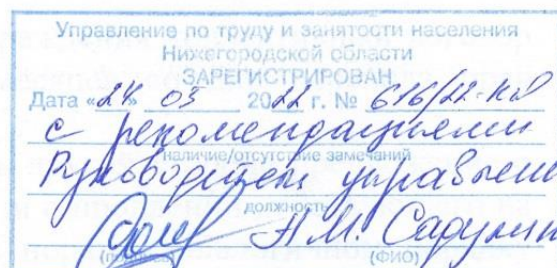 Управление по труду и занятости населения
Нижегородской области
ЗАРЕГИСТРИРОВАН
Дата «24» 03 2022 г. № 616/22-КД
с рекомендациями
наличие/отсутствие замечаний
Руководитель управлени
должность
А.М. Садулин
(подпись) (ФИО)